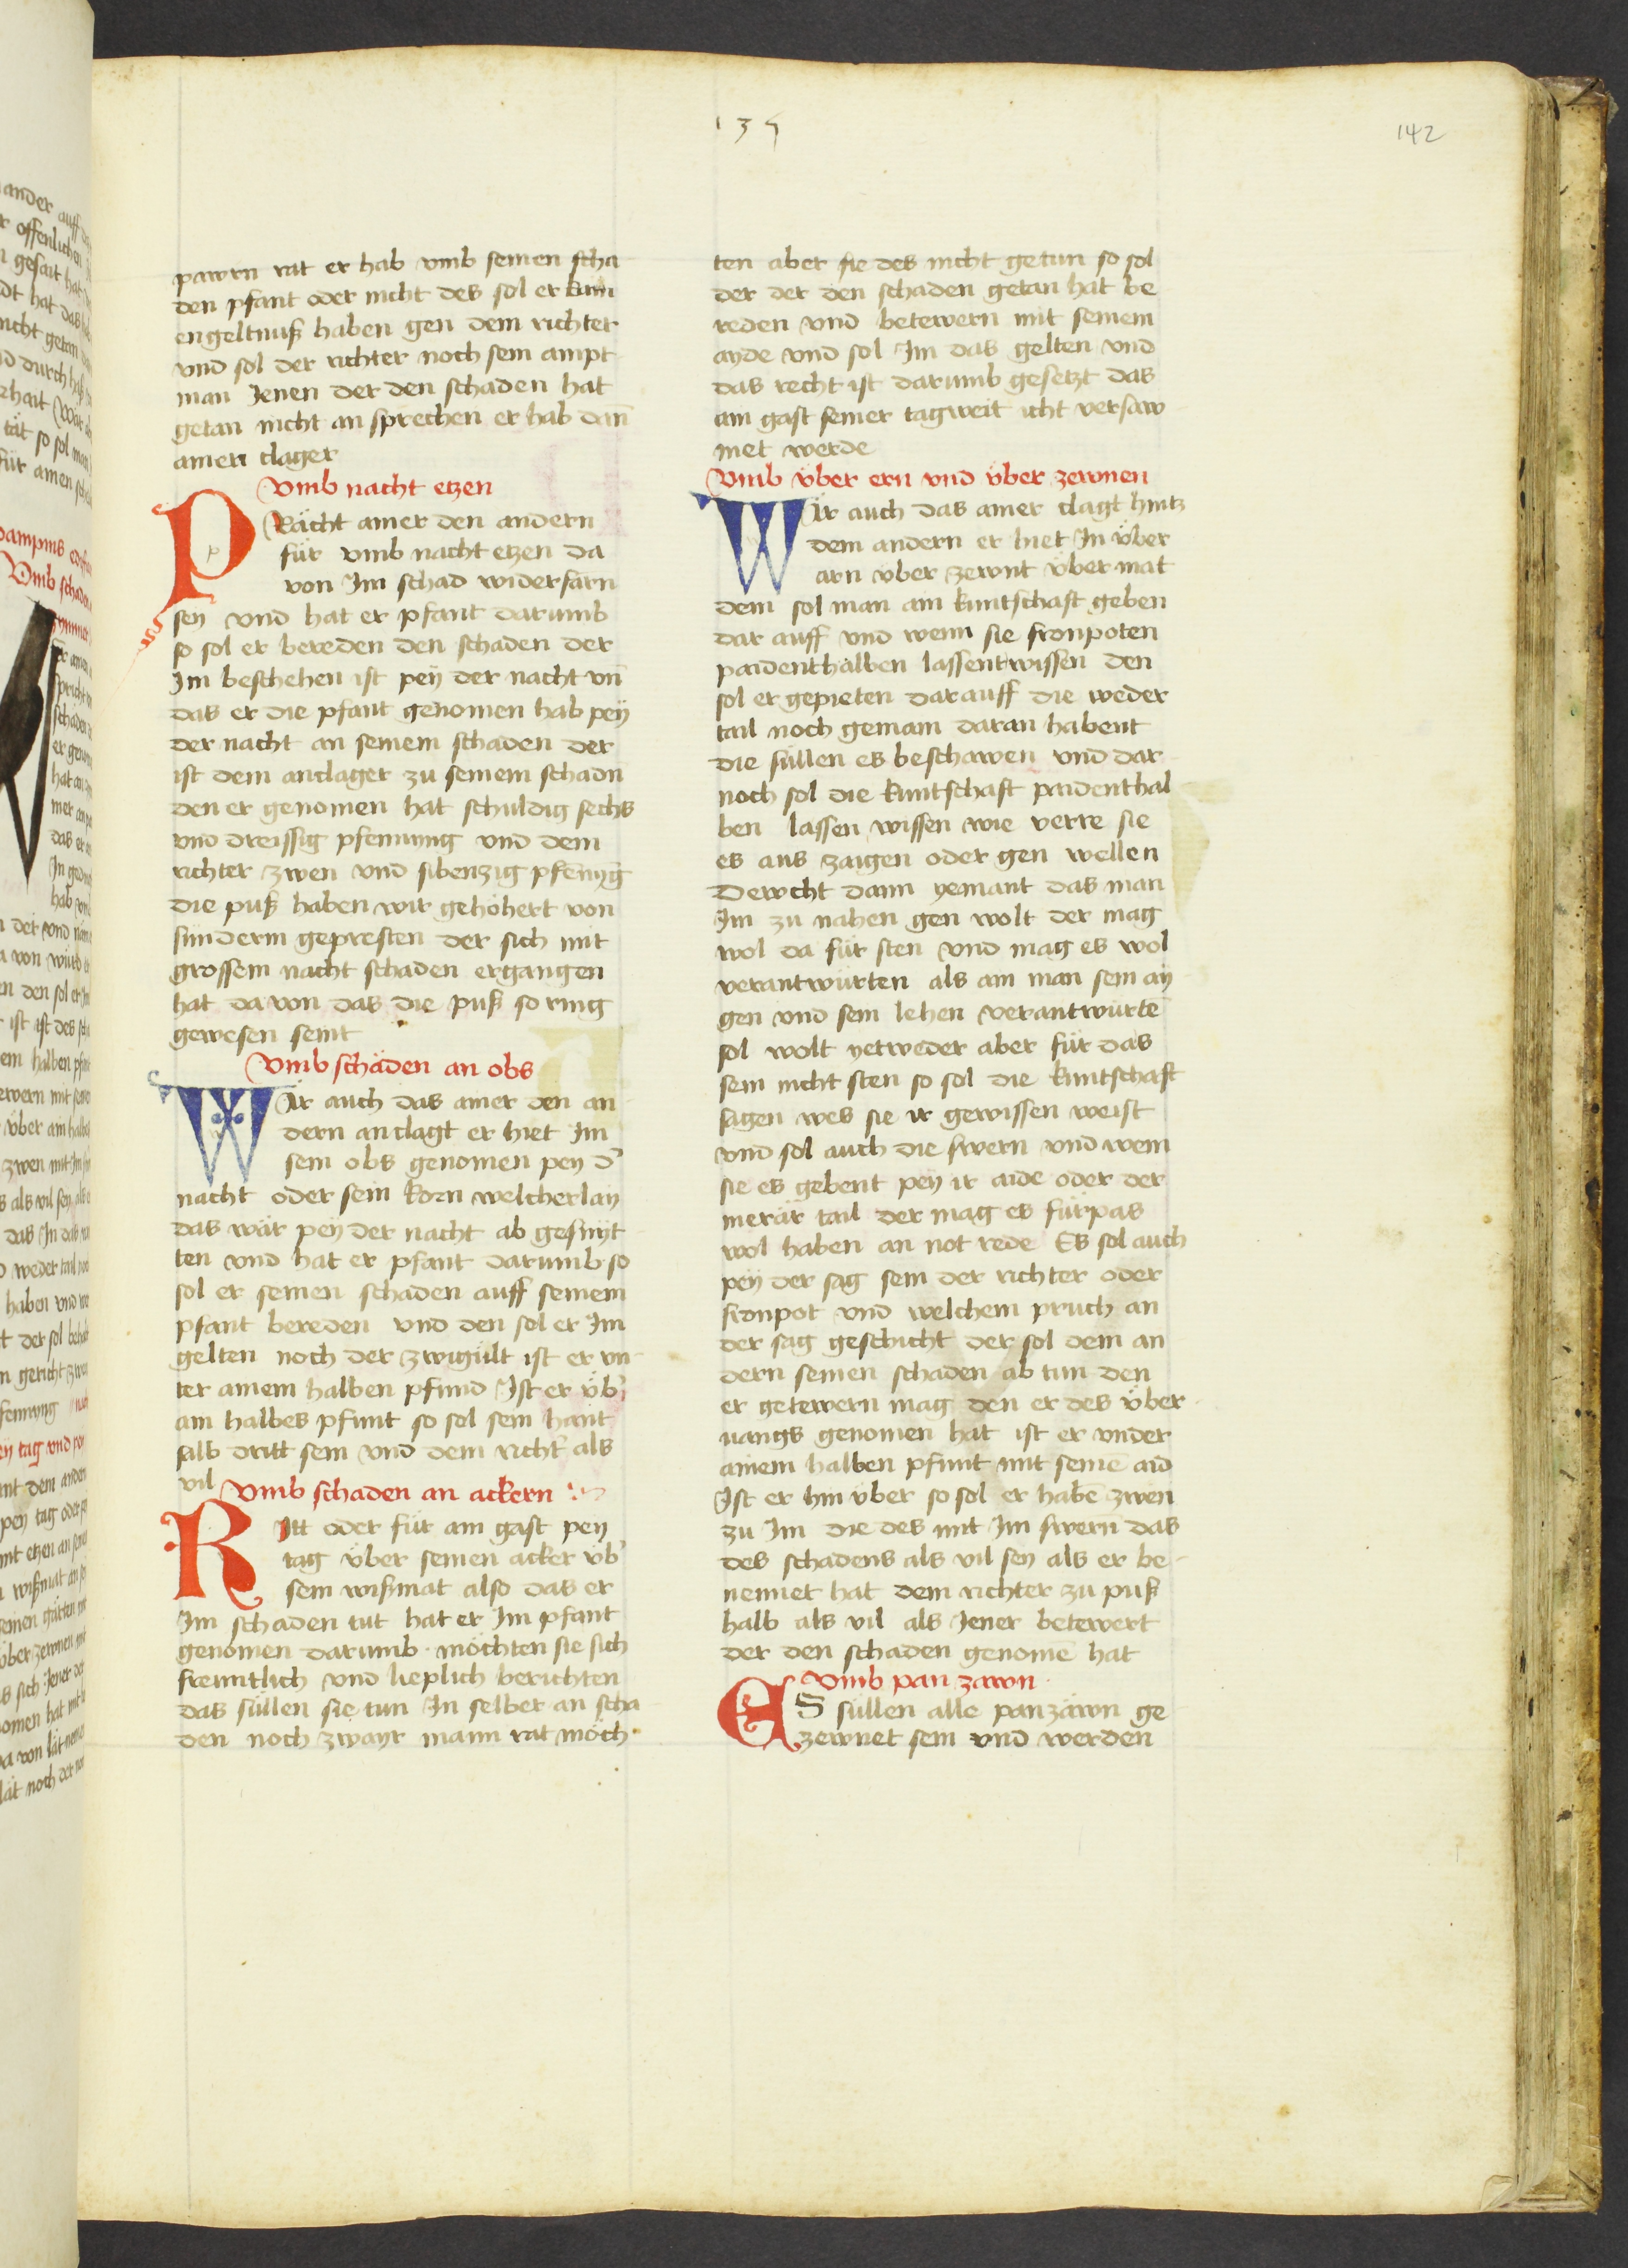 135
142
pawrn rat er hab vmb seinen scha
den pfant oder nicht des sol er kain
engeltnuß haben gen dem richter
vnd sol der richter noch sein ampt
man Jenen der den schaden hat
getan nicht an sprechen er hab dañ
ainen clager
Vmb nacht etzen
PRächt ainer den andern
für vmb nacht etzen da
von Im schad widerfarn
sey vnd hat er pfant darumb
so sol er bereden den schaden der
Im beschehen ist pey der nacht vñ
das er die pfant genomen hab pey
der nacht an seinem schaden der
ist dem anclager zu seinem schadn
den er genomen hat schuldig sechs
vnd dreissig pfenning vnd dem
richter zwen vnd sibenzig pfenīg
die puß haben wir gehöhert von
sunderm gepresten der sich mit
grossem nacht schaden ergangen
hat da von das die puß so ring
gewesen seint
Vmb schäden an obs
WÄr auch das ainer den an
dern anclagt er hiet Im
sein obs genomen pey d'
nacht oder sein korn welcherlay
das wär pey der nacht ab gesnyt
ten vnd hat er pfant darumb so
sol er seinen schaden auff seinem
pfant bereden vnd den sol er Im
gelten noch der zwigült ist er vn
ter ainem halben pfund Ist er üb'
ain halbes pfunt so sol sein hant
salb dritt sein vnd dem richt' als
vil
Vmb schaden an ackern
RItt oder für ain gast pey
tag über seinen acker üb'
sein wißmat also das er
Im schaden tut hat er Im pfant
genomen darumb · möchten sie sich
freuntlich vnd lieplich berichten
das süllen sie tun In selber an scha
den noch zwayr mann rat möch
ten aber sie des nicht getun so sol
der der den schaden getan hat be
reden vnd betewern mit seinem
ayde vnd sol Im das gelten vnd
das recht ist darumb gesetzt das
ain gast seiner tagweit icht versaw
met werde
Vmb über ern vnd über zewnen
WÄr auch das ainer clagt hintz
dem andern er hiet In über
arn über zewnt über mät
dem sol man ain kuntschaft geben
dar auff vnd wenn sie fronpoten
paidenthalben lassent wissen den
sol er gepieten darauff die weder
tail noch gemain daran habent
die süllen es beschawen vnd dar
noch sol die kuntschaft paidenthal
ben lassen wissen wie verre sie
es aus zaigen oder gen wellen
Dewcht dann yemant das man
Im zu nahen gen wolt der mag
wol da für sten vnd mag es wol
verantwürten als ain man sein ay
gen vnd sein lehen verantwürtē
sol wolt yetweder aber für das
sein nicht sten so sol die kuntschaft
sagen wes sie ir gewissen weist
vnd sol auch die swern vnd wem
sie es gebent pey ir aide oder der
merär tail der mag es fürpas
wol haben an not rede Es sol auch
pey der sag sein der richter oder
fronpot vnd welchem pruch an
der sag geschicht der sol dem an
dern seinen schaden ab tun den
er getewern mag den er des über
uangs genomen hat ist er vnder
ainem halben pfunt mit seinē aid
Ist er hin über so sol er habē zwen
zu Im die des mit Im swern das
des schadens als vil sey als er be
nennet hat dem richter zu puß
halb als vil als Jener betewert
der den schaden genomē hat
Vmb pan zawn
ES süllen alle panzäwn ge
zewnet sein vnd werden